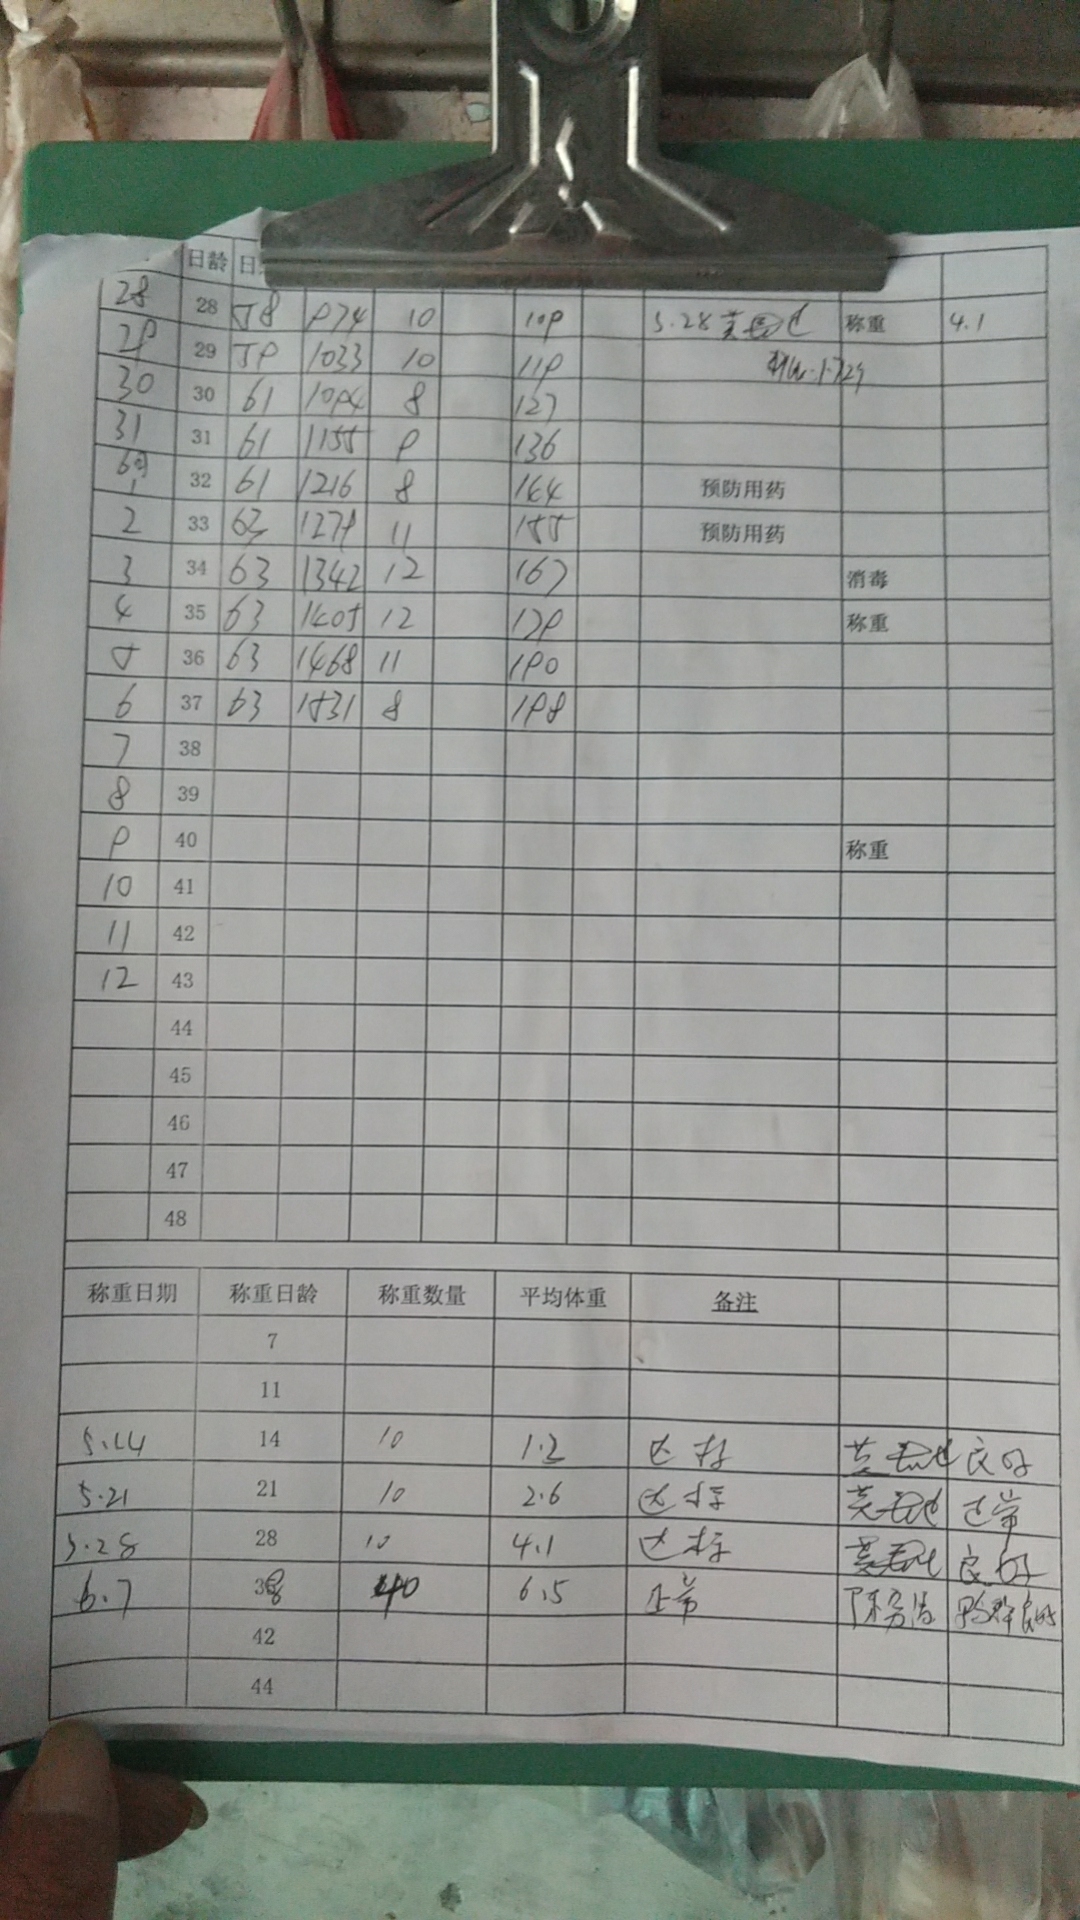 日龄
28 28 58 974 10 109 5.28 称重 4.1
29 29 59 1033 10 119
30 30 61 1094 8 127
31 31 61 1155 9 136
6月1 32 61 1216 8 144 预防用药
2 33 63 1279 11 155 预防用药
3 34 63 1342 12 167 消毒
4 35 63 1405 12 179 称重
5 36 63 1468 11 190
6 37 63 1531 8 198
7 38
8 39
9 40 称重
10 41
11 42
12 43
44
45
46
47
48
称重日期 称重日龄 称重数量 平均体重 备注
7
11
5.14 14 10 1.2 达标 良好
5.21 21 10 2.6 达标 正常
5.28 28 10 4.1 达标 良好
6.7 38 40 6.5 正常 鸭群良好
42
44